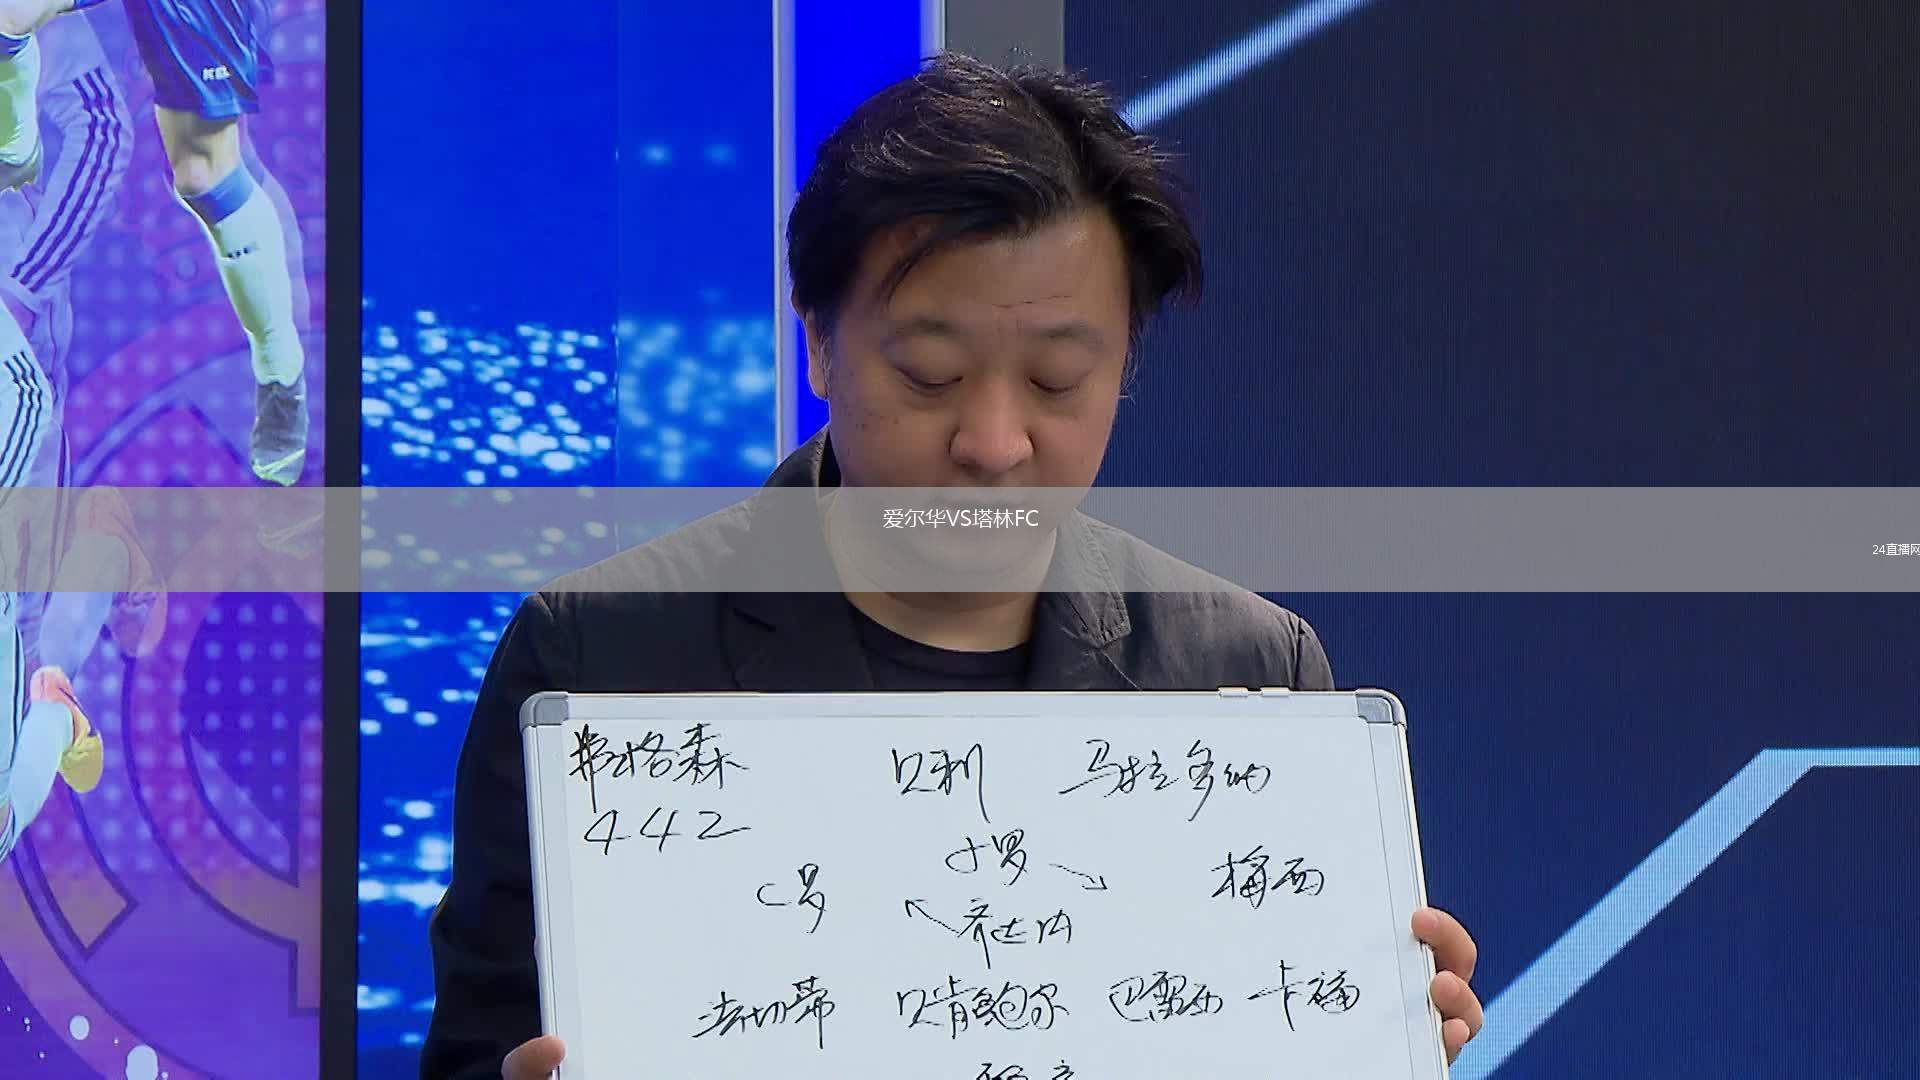 爱尔华VS塔林FC
24直播网
弗格森 贝利 马拉多纳
442
小罗
C罗 梅西
齐达内
法切蒂 贝肯鲍尔 巴雷西 卡福